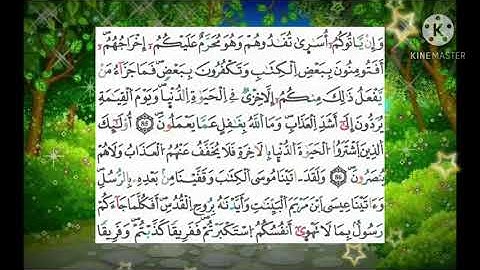 وَإِنْ يَّاتُوكُمُۥٓ أُسَٰرىٰ تُفَٰدُوهُمْ وَهُوَ مُحَرَّمٌ عَلَيْكُمُۥٓ إِخْرَاجُهُمُۥٓ
أَفَتُومِنُونَ بِبَعْضِ الْكِتَٰبِ وَتَكْفُرُونَ بِبَعْضٍ فَمَا جَزَآءُ مَنْ
يَّفْعَلُ ذَٰلِكَ مِنكُمُۥٓ إِلَّا خِزْيٌ فِي الْحَيَوٰةِ الدُّنْيَا وَيَوْمَ الْقِيَٰمَةِ
يُرَدُّونَ إِلَىٰٓ أَشَدِّ الْعَذَابِ وَمَا اللَّهُ بِغَٰفِلٍ عَمَّا يَعْمَلُونَ 85 أُوْلَٰٓئِكَ
الَّذِينَ اشْتَرَوُا الْحَيَوٰةَ الدُّنْيَا بِالَاخِرَةِ فَلَا يُخَفَّفُ عَنْهُمُ الْعَذَابُ وَلَا هُمْ
يُنصَرُونَ 86 وَلَقَدَ اتَيْنَا مُوسَى الْكِتَٰبَ وَقَفَّيْنَا مِنۢ بَعْدِهِۦ بِالرُّسُلِ
وَءَاتَيْنَا عِيسَى ابْنَ مَرْيَمَ الْبَيِّنَٰتِ وَأَيَّدْنَٰهُ بِرُوحِ الْقُدُسِ أَفَكُلَّمَا جَآءَكُمْ
رَسُولٌۢ بِمَا لَا تَهْوىٰٓ أَنفُسُكُمُ اسْتَكْبَرْتُمْ فَفَرِيقاً كَذَّبْتُمْ وَفَرِيقاً
KINEMASTER